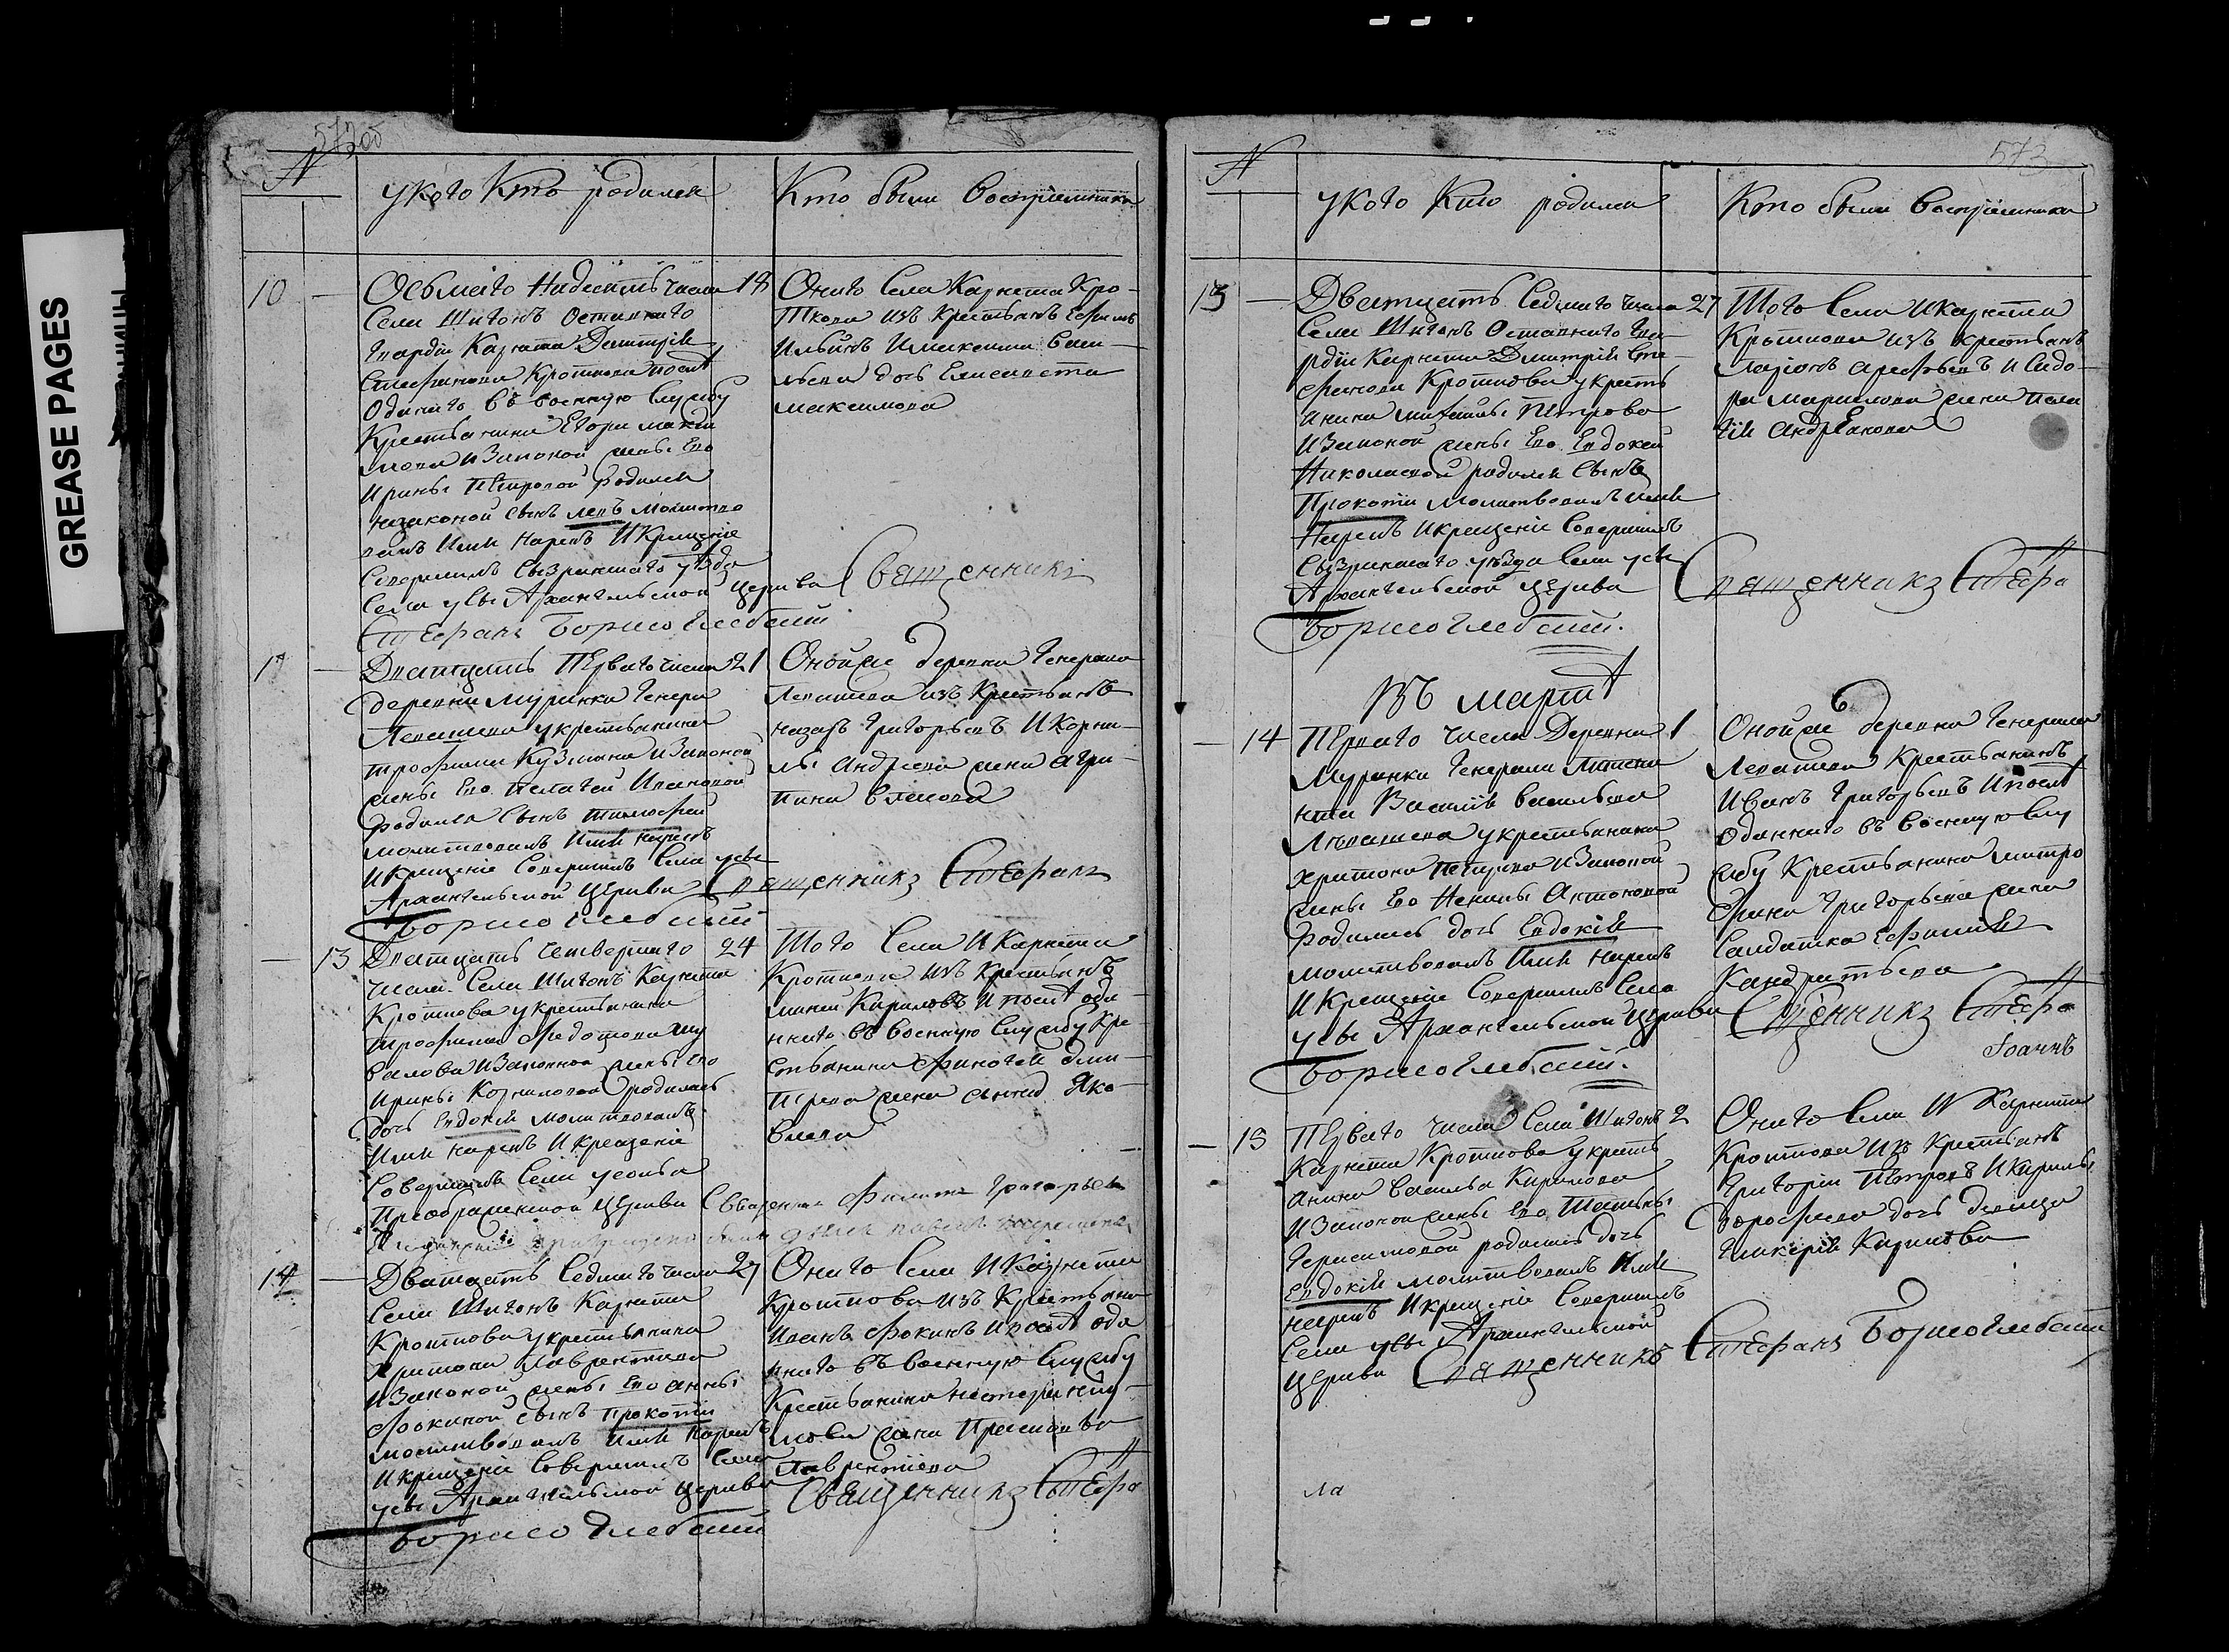 GREASE PAGES
572об
N
У кого Кто родился
Кто были восприемники
10
Осьмаго Надесять числа 18
Села Шигонъ Оставнаго
Гвардіи Карнета Димитрія
Стефанова Кроткова после
Отданнаго въ военную Службу
Крестьянина Егора макси
мова и Законой жены Его
Ирины Петровой родился
незаконой сынъ левъ молитво
валъ Имя нарекъ И Крещеніе
Совершилъ Сызранскаго уезда
Села усы Архангельской Церкви Священникъ
Стефанъ Борисоглебский
Онаго Села Карнета Кро-
ткова изъ крестьянъ Ефимъ
Ильинъ И максима Васи-
льева дочь Елисавета
максимова
11
Дватцать Перваго числа 21
деревни муранки Генера
Левашева у крестьянина
трофима Кузмина и Законой
жены Его Пелагеи Ивановой
родился Сынъ тимофей
молитвовалъ Имя нарекъ
И Крещеніе Совершилъ Села усы
Архангельской Церкви Священникъ Стефанъ
Борисоглебский
Оной же деревни Генерала
Левашева изъ Крестьянъ
назаръ Григорьевъ И Корни-
лы Андреева жена Агри-
пина
13
Дватцать Четвертаго 24
числа Села Шигонъ Карнета
Кроткова у крестьянина
трофима Федотова Шу
валова и Законной жены Его
Ирины Корниловой родилась
дочь Евдокія молитвовалъ
Имя нарекъ И крещеніе
Совершилъ Села усолья
Преображенской Церкви Священникъ Филипъ Григорьевъ
Того Села И Карнета
Кроткова изъ Крестьянъ
миней Кириловъ И после отда
ннаго въ военную Службу Кре-
стьянина финогея дми-
трева жена Яко-
влева
14
Дватцать Седмаго числа 27
Села Шигонъ Карнета
Кроткова у крестьянина
Харитона Лаврентьева
И Законой жены Его анны
Фокиной сынъ Прокопій
молитвовалъ Имя нарекъ
И крещеніе Совершилъ Села
усы Архангельской церкви
Борисоглебский
Онаго Села И Карнета
Кроткова изъ Крестьянъ
Иванъ Фокинъ И после отда
ннаго въ военную Службу
Крестьянина нестера
жена Прасковья
Лаврентіева
Священникъ Стефа
573
N
У кого Кто родился
Кто были Восприемники
13
Дватцать Седмаго числа 27
Села Шигонъ Оставнаго Гва-
рдіи Карнета Дмитрія Сте-
фанова Кроткова у крестъ
янина михайлы Петрова
И Законой жены Его Евдокеи
Николаевой родился Сынъ
Прокопій молитвовалъ имя
Нарекъ И крещеніе Совершилъ
Сызранскаго уѣзда Села усы
Архангельской Церкви
Борисоглебский
Того Села И Карнета
Кроткова изъ крестьянъ
Ларіонъ арефьевъ И Сидо-
ра жена Пела
гія Андреянова
Священникъ Стефа
Въ марте
14
Перваго числа Деревни 1
Муранки Генерала Литена
нта Василія Васильева
Левашева у крестьянина
Харитона Петрова и Законой
жены Его Ненилы Антоновой
родилась дочь Евдокія
молитвовалъ Имя нарекъ
И Крещеніе Совершилъ Села
усы Архангельской Церкви
Борисоглебский
Оной же деревни Генерала
Левашева Крестьянинъ
Иванъ Григорьевъ И после
отданнаго въ Военную Слу
жбу Крестьянина митро
фана Григорьева жена
Салдатка Ефимия
Кандратьева
Сщенникъ Стефа
Іоаннъ
15
Перваго числа Села Шигонъ 2
Карнета Кроткова у крестъ
янина Василья Кирилова
И Законой жены Его Татьяны
Герасимовой родилась дочь
Евдокія молитвовалъ Имя
нарекъ И крещеніе Совершилъ
Села усы Архангельской
церкви Священникъ Стефанъ Борисоглебский
Онаго Села И Карнета
Кроткова Изъ Крестьянъ
Григорій Петровъ И Кирилы
Дорофеева дочь девица
Гликерія Кирилова
ла